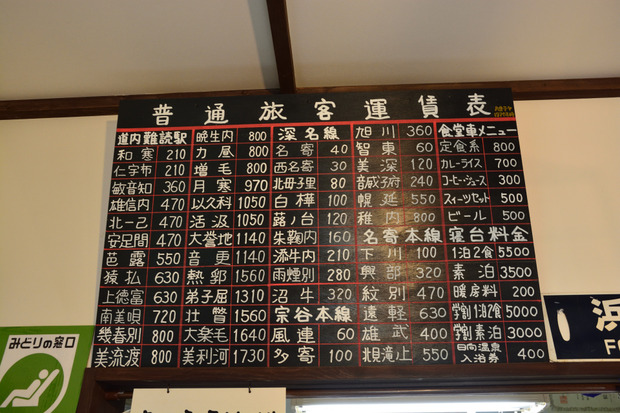 普通旅客運賃表
道内難読駅
和寒 210
仁宇布 210
敏音知 360
雄信内 470
北一己 470
安足間 470
芭露 550
猿払 630
上徳富 630
南美唄 720
幾春別 800
美流渡 800
晩生内 800
力昼 800
増毛 800
月寒 970
以久科 1050
活汲 1050
大誉地 1140
音更 1140
熱郛 1560
弟子屈 1310
壮瞥 1560
大楽毛 1640
美利河 1730
深名線
名寄 40
西名寄 30
北母子里 80
白樺 100
蕗ノ台 120
朱鞠内 160
添牛内 210
雨煙別 280
沼牛 320
宗谷本線
風連 60
多寄 100
旭川 360
智東 60
美深 120
音威子府 240
幌延 550
稚内 800
名寄本線
下川 100
興部 320
紋別 470
遠軽 630
雄武 400
北見滝ノ上 550
食堂車メニュー
定食系 800
カレーライス 700
コーヒー・ジュース 300
スィーツセット 500
ビール 500
寝台料金
1泊2食 5500
素泊 3500
暖房料 200
学割1泊2食 5000
学割素泊 3000
日向温泉入浴券 400
みどりの窓口
浜